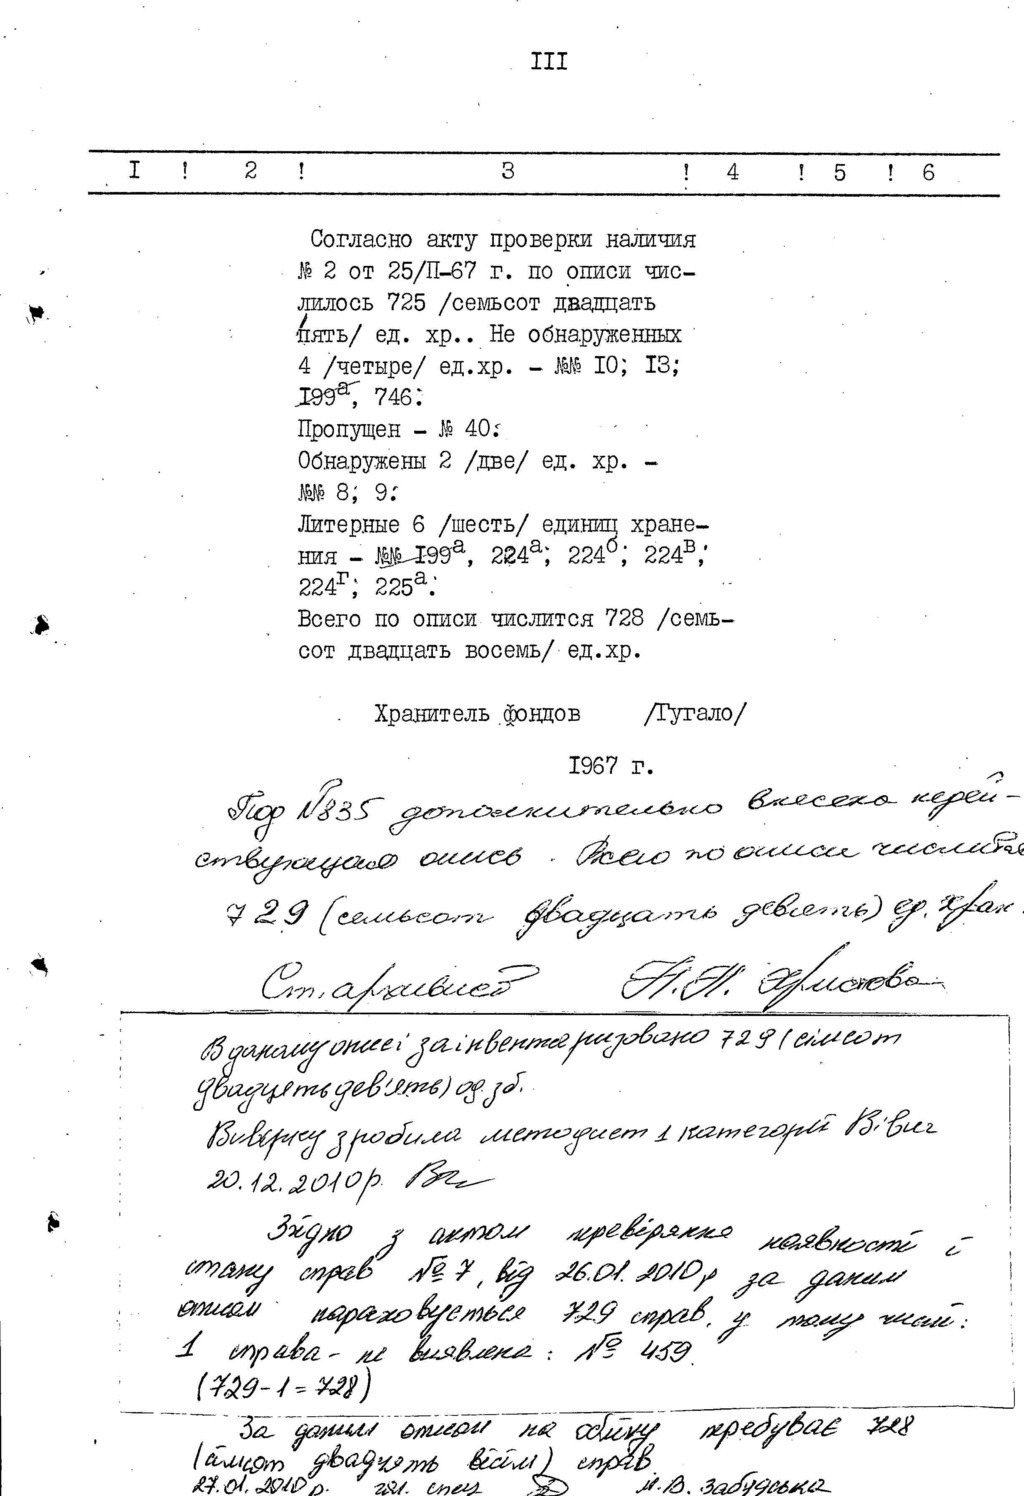 III
I ! 2 ! 3 ! 4 ! 5 ! 6
Согласно акту проверки наличия
№ 2 от 25/П-67 г. по описи чис-
лилось 725 /семьсот двадцать
пять/ ед. хр.. Не обнаруженных
4 /четыре/ ед.хр. - №№ IO; I3;
I99а, 746.
Пропущен - № 40.
Обнаружены 2 /две/ ед. хр. -
№№ 8; 9.
Литерные 6 /шесть/ единиц хране-
ния - №№ I99а, 224а; 224б; 224в;
224г; 225а.
Всего по описи числится 728 /семь-
сот двадцать восемь/ ед.хр.
Хранитель фондов /Тугало/
I967 г.
Под №835 дополнительно внесена недей-
ствующая опись. Всего по описи числится
729 (семьсот двадцать девять) ед. хран.
Ст. архивист Н.Н. Христова
В даному описі заінвентаризовано 729 (сімсот
двадцять дев'ять) од. зб.
Вивірку зробила методист 1 категорії
20.12.2010р.
Згідно з актом перевіряння наявності і
стану справ № 7, від 26.01.2010р за даним
описом нараховується 729 справ, у тому числі:
1 справа - не виявлена: № 459
(729-1=728)
За даним описом на обліку перебуває 728
(сімсот двадцять вісім) справ
27.01.2010 р. гол. спец М.В. Забудська